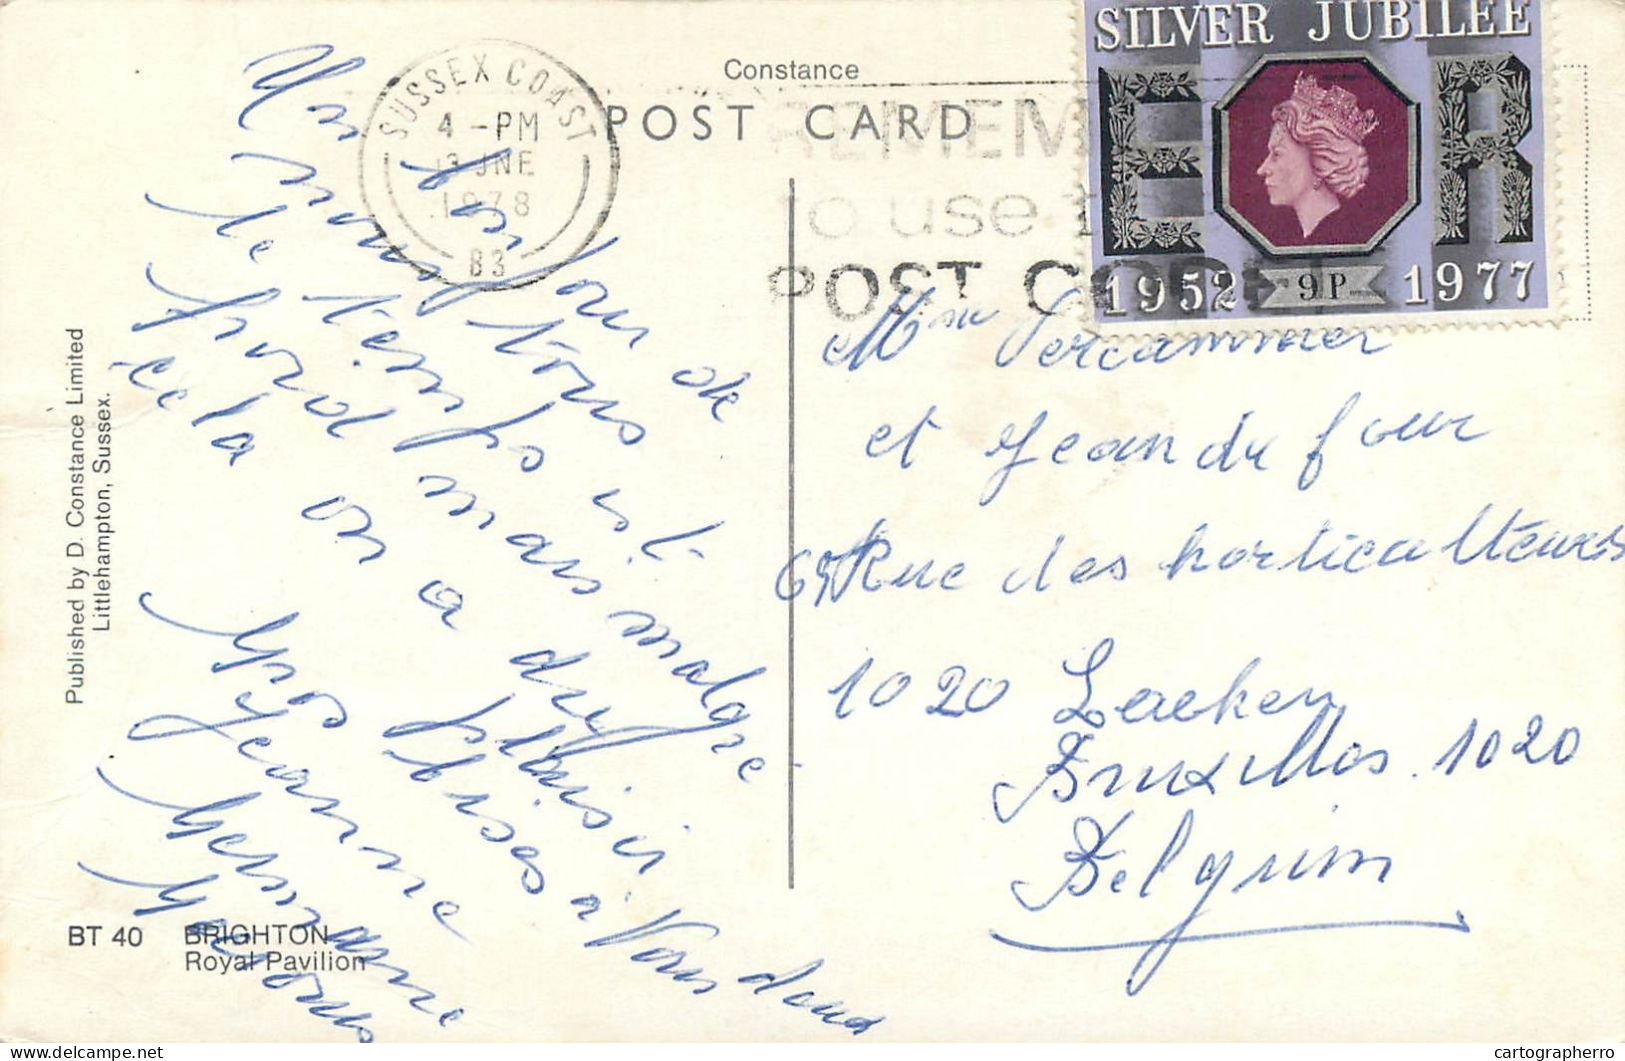 Constance
POST CARD
SILVER JUBILEE
E R
1952 9P 1977
SUSSEX COAST
4 - PM
JNE
1978
B3
REMEM
to use
POST CODE
Un bonjour de
nous tous
le temps est
froid mais malgre
cela on a du plaisir
Gros bises à Vous deux
Jeanne
Germaine
Mme Vercammer
et Jean du four
69 Rue des horticulteurs
1020 Laeken
Bruxelles 1020
Belgium
Published by D. Constance Limited
Littlehampton, Sussex.
BT 40 BRIGHTON
Royal Pavilion
delcampe.net
cartographerro